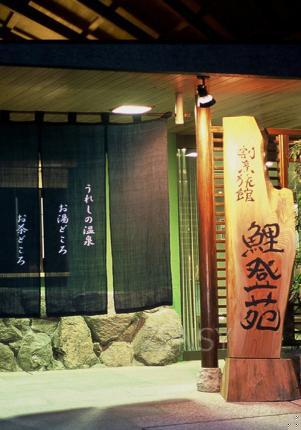 うれしの温泉
お湯どころ
お茶どころ
割烹旅館
鯉登苑